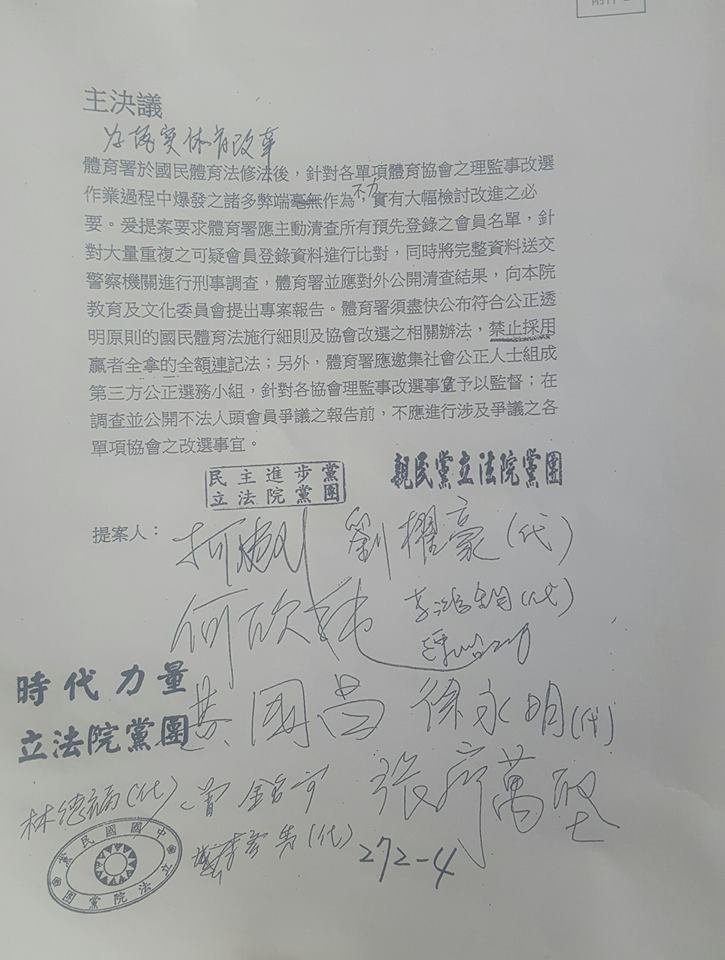 主決議
為落實体育改革
體育署於國民體育法修法後，針對各單項體育協會之理監事改選
作業過程中爆發之諸多弊端毫無作為不力，實有大幅檢討改進之必
要。爰提案要求體育署應主動清查所有預先登錄之會員名單，針
對大量重複之可疑會員登錄資料進行比對，同時將完整資料送交
警察機關進行刑事調查，體育署並應對外公開清查結果，向本院
教育及文化委員會提出專案報告。體育署須盡快公布符合公正透
明原則的國民體育法施行細則及協會改選之相關辦法，禁止採用
贏者全拿的全額連記法；另外，體育署應邀集社會公正人士組成
第三方公正選務小組，針對各協會理監事改選事宜予以監督；在
調查並公開不法人頭會員爭議之報告前，不應進行涉及爭議之各
單項協會之改選事宜。
民主進步黨
立法院黨團
親民黨立法院黨團
提案人：
劉櫂豪(代)
何欣純
李鴻鈞(代)
時代力量
立法院黨團
黃國昌 徐永明(代)
林德福(代)
張廖萬堅
(代)
272-4
中國國民黨
立法院黨團